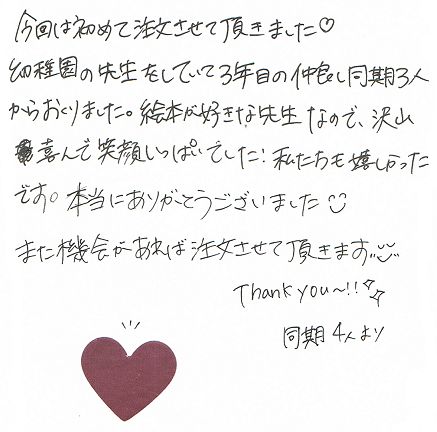 今回は初めて注文させて頂きました♡
幼稚園の先生をしていて3年目の仲良し同期3人
からおくりました。絵本が好きな先生なので、沢山
喜んで笑顔いっぱいでした！私たちも嬉しかった
です。本当にありがとうございました
また機会があれば注文させて頂きます
Thank you〜!!
同期4人より